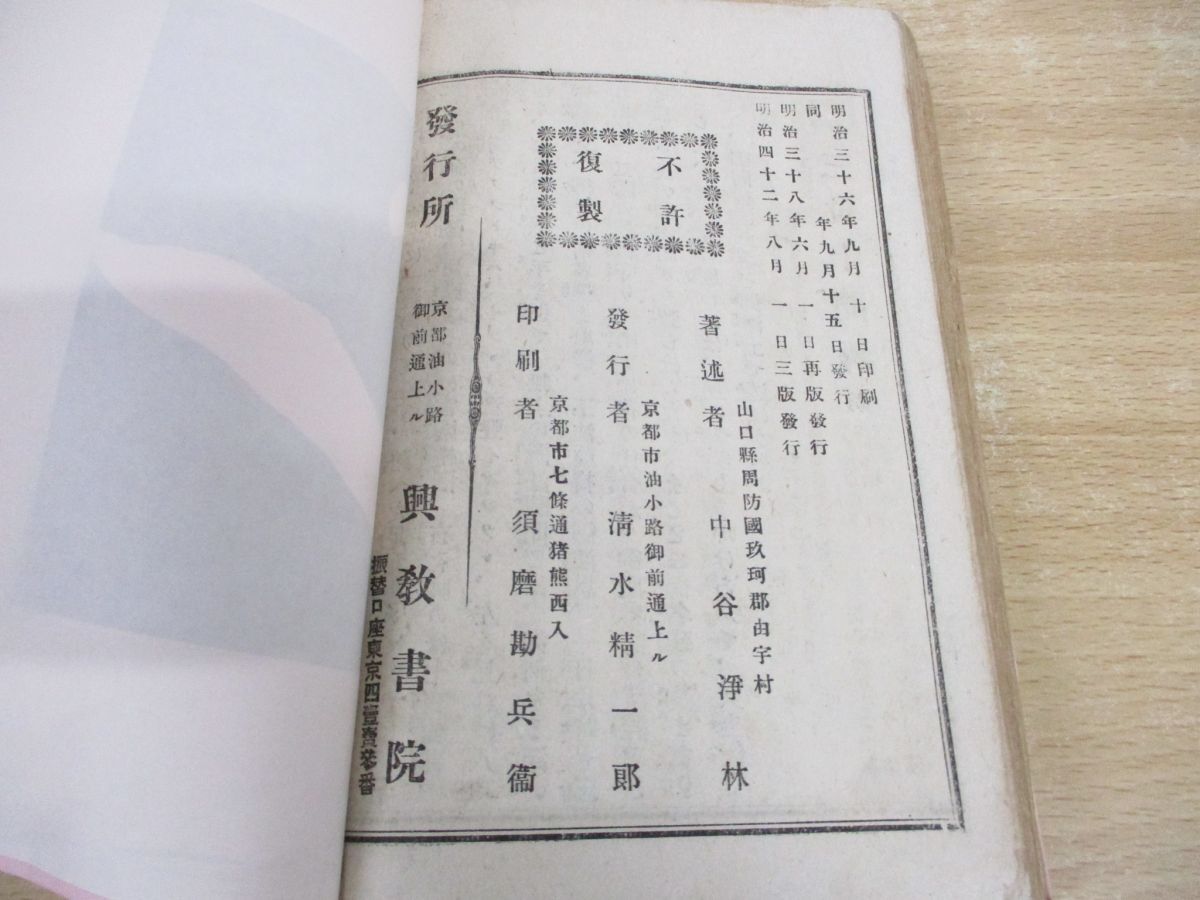 明治三十六年九月十日印刷
同年九月十五日發行
明治三十八年六月一日再版發行
明治四十二年八月一日三版發行
不許
復製
山口縣周防國玖珂郡由宇村
著述者 中谷淨林
京都市油小路御前通上ル
發行者 淸水精一郎
京都市七條通猪熊西入
印刷者 須磨勘兵衞
發行所
京都油小路
御前通上ル
興敎書院
振替口座東京四壹
番